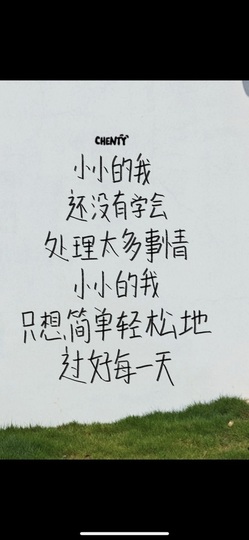 CHENTY
小小的我
还没有学会
处理太多事情
小小的我
只想简单轻松地
过好每一天